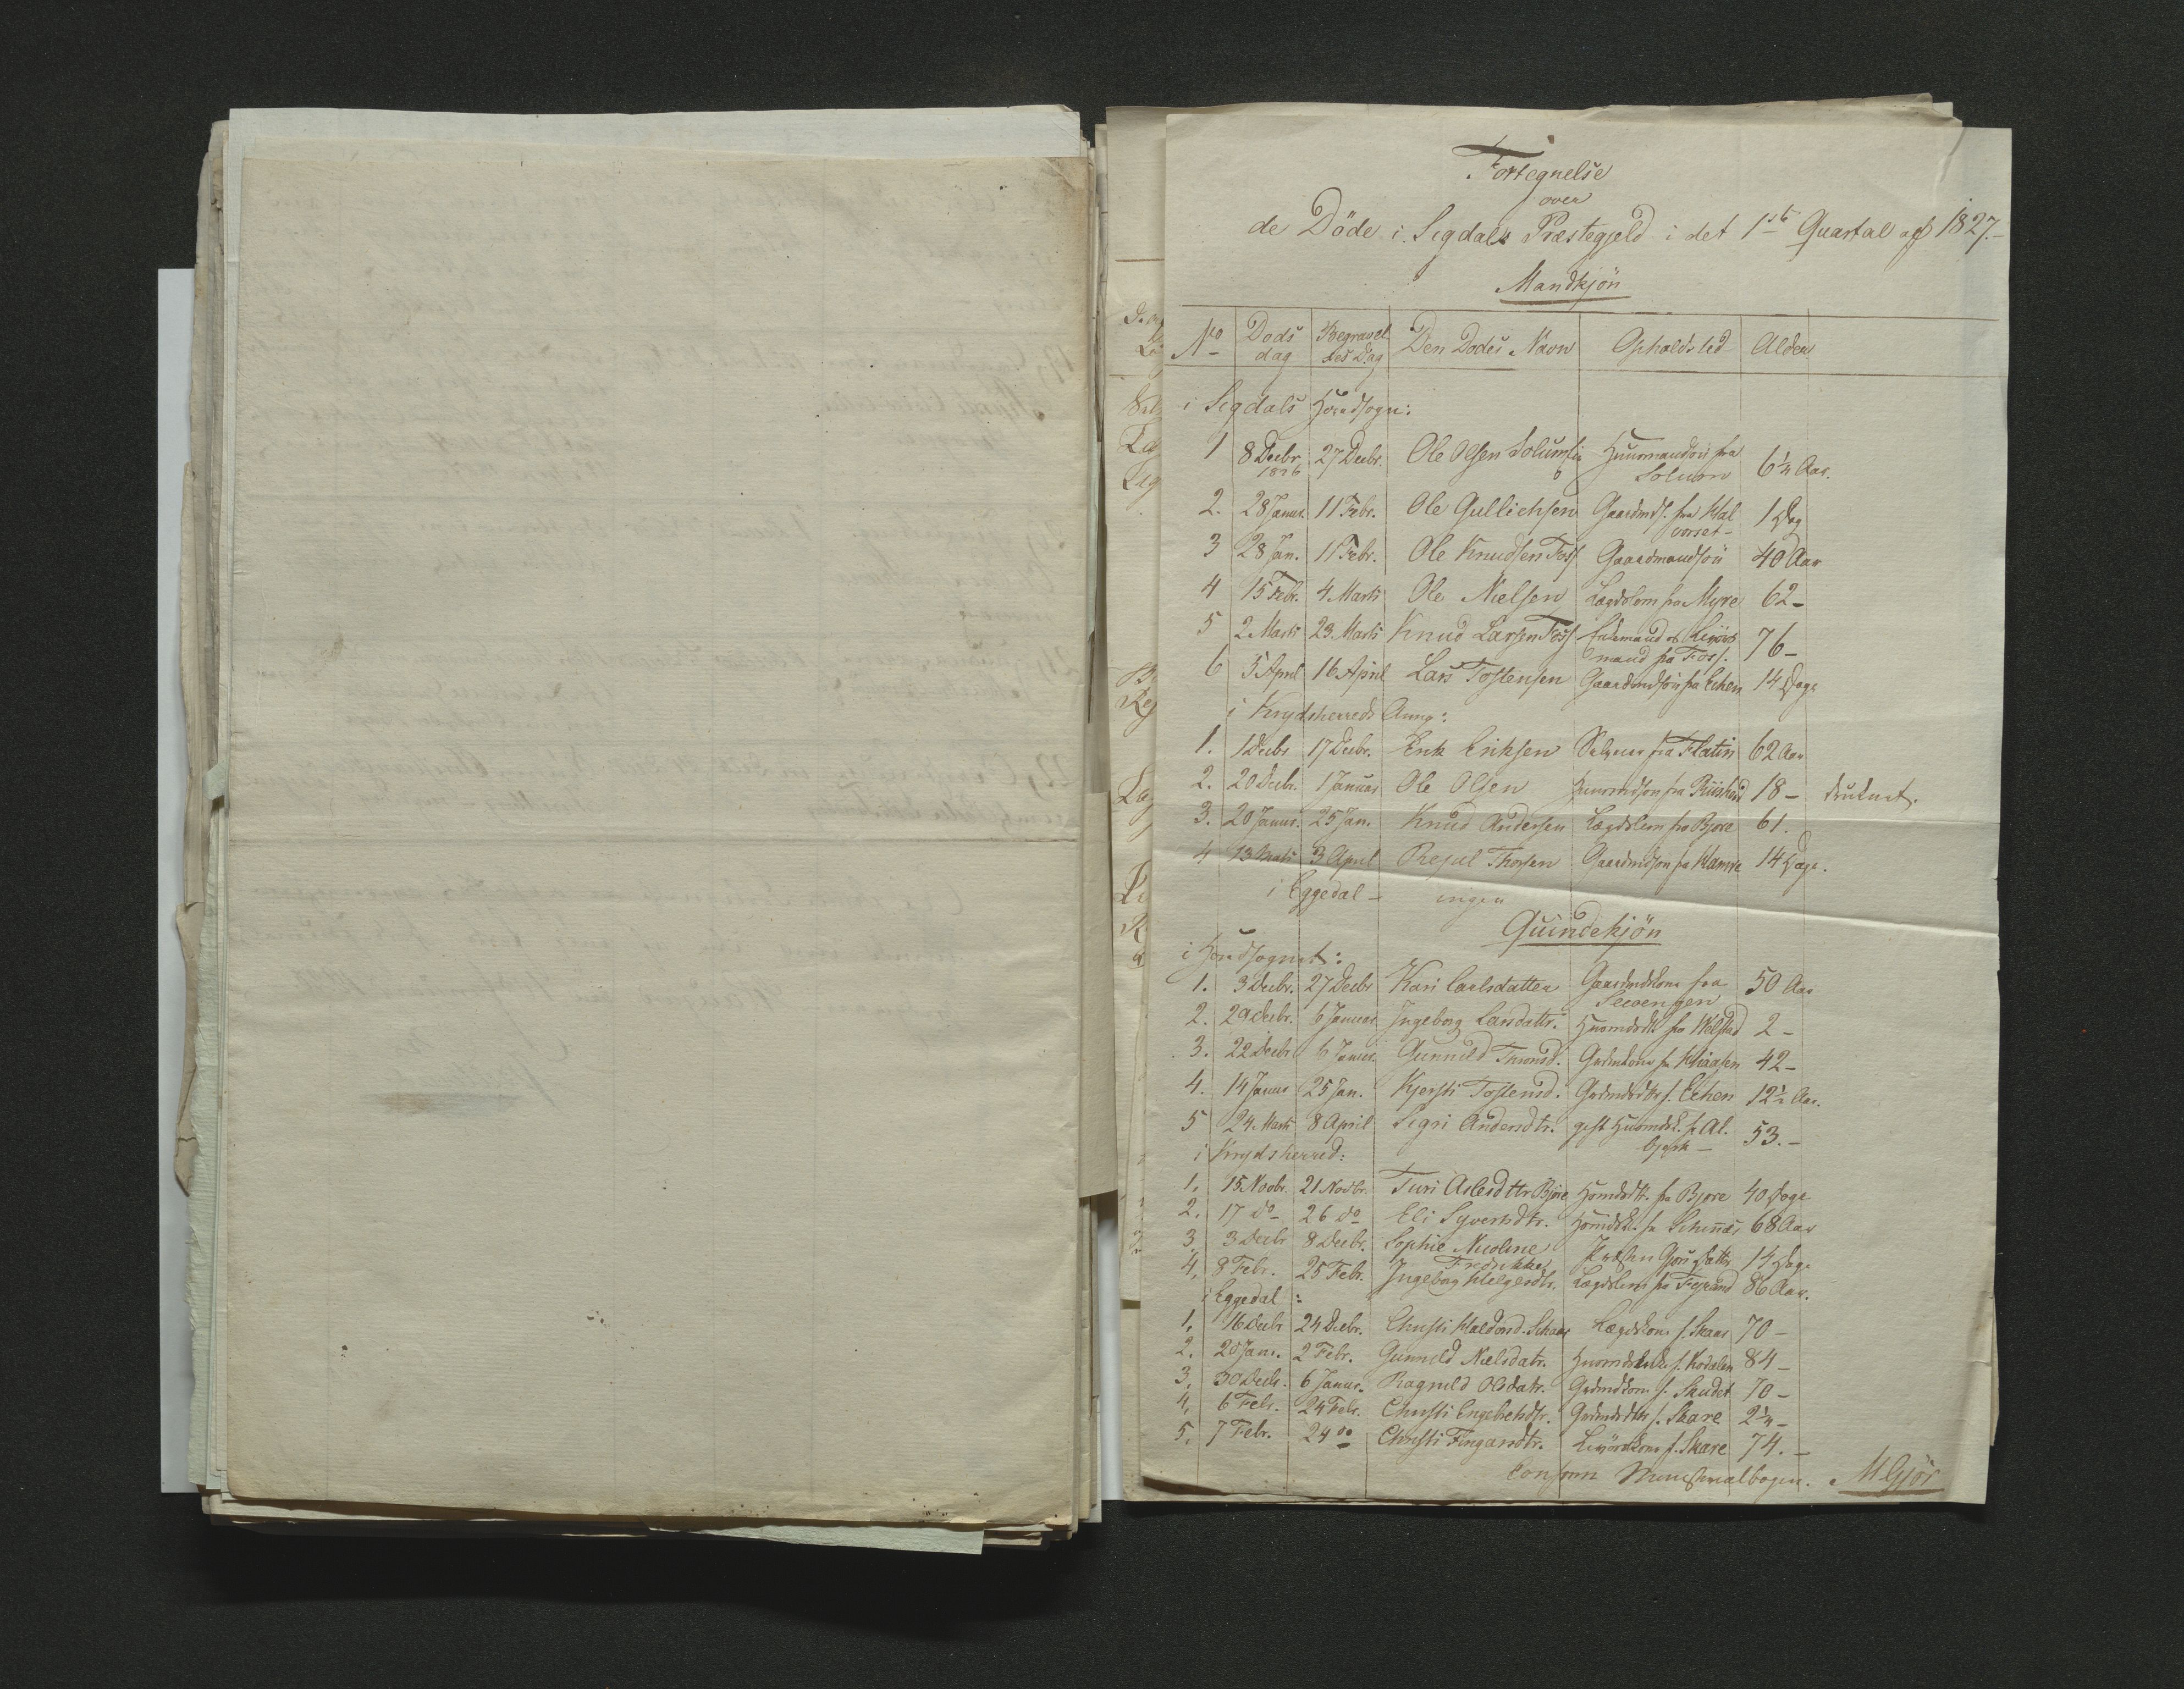 Fortegnelse
over
de Döde i Sigdals Præstegjeld i det 1ste Quartal af 1827.-
Mandkjön
No Döds dag Begravelses Dag Den Dödes Navn Opholdsted Alder
i Sigdals Hovedsogn:
1 8 Decbr 1826 27 Decbr. Ole Olsen Solumlie Huusmandsön fra Solumm 6 1/4 Aar.
2. 28 Januar. 11 Febr. Ole Gullichsen Gaardmds. fra Halvorset- 1 Dag
3 28 Jan. 11 Febr. Ole Knudsen Foss Gaardmandsön 40 Aar
4 15 Febr. 4 Marts Ole Nielsen Lægdslem fra Myre 62 -
5 2 Marts 23 Marts Knud Larsen Foss Enkemand og Livöresmand fra Foss. 76 -
6 5 April 16 April Lars Tostensen Gaardmdsön fra Echen 14 Dage
i Krydsherreds Annex:
1. 1 Decbr 17 Decbr. Erik Eriksen fra Flatin 62 Aar
2. 20 Decbr. 1 Januar Ole Olsen Huusmdsön fra 18 - druknet.
3. 20 Januar. 25 Jan. Knud Andersen Lægdslem fra Bjore 61.
4 13 Marts 3 April Thorsen Gaardmdsön fra Hamre 14 Dage.
i Eggedal - ingen
Quindekjön
i Hovedsognet:
1. 3 Decbr. 27 Decbr Kari Carlsdatter Gaardmdskone fra 50 Aar
2. 29 Decbr. 6 Januar Ingeborg Larsdattr. Huusmdsdtr fra 2 -
3. 22 Decbr 6 Januar Gunnild Grdmdkone fr. 42 -
4. 14 Januar 25 Jan. Kjersti Tostensd. Grdmdsdtr f. Echen 12 1/2 Aar.
5 24 Marts 8 April Sigri Andersdtr. gift Huusmdsk. fr Albjerk - 53. -
i Krydsherred:
1. 15 Novbr. 21 Novbr. Turi Aslesdttr Björe Husmdsdtr. fra Bjore 40 Dage
2. 17 do 26 do Eli Syvertsdtr. Husmdsk. fr 68 Aar
3. 3 Decbr 8 Decbr. Sophie Nicoline Fredrikke Præsten Gjörs Datter 14 Dage
4. 8 Febr. 25 Febr. Ingeborg Helgesdtr. Lægdslem fra 86 Aar.
i Eggedal:
1. 16 Decbr 24 Decbr. Christi Haldorsd. Schare Lægdskone f. Skare 70 -
2. 20 Janr. 2 Febr. Gunnild Nielsdatr. 84 -
3. 30 Decbr. 6 Januar. Ragnild Olsdatr. Grdmdkone f. Skudet 70 -
4. 6 Febr. 24 Febr. Christi Engebretsdtr. Grdmdsdtr f. Skare 2 1/4 -
5. 7 Febr. 24 do Christi Fingarsdtr. Livöreskone f. Skare 74. -
Conform Ministerialbogen. M Gjör